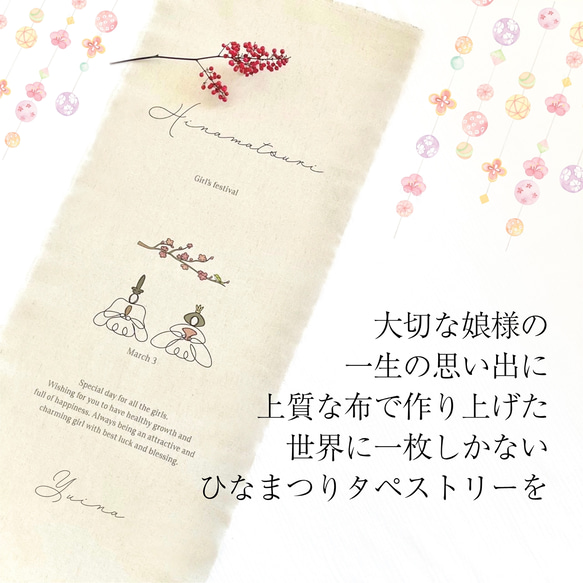 Hinamatsuri
Girl's festival
March 3
Special day for all the girls.
Wishing for you to have healthy growth and
full of happiness. Always being an attractive and
charming girl with best luck and blessing.
Yuina
大切な娘様の
一生の思い出に
上質な布で作り上げた
世界に一枚しかない
ひなまつりタペストリーを